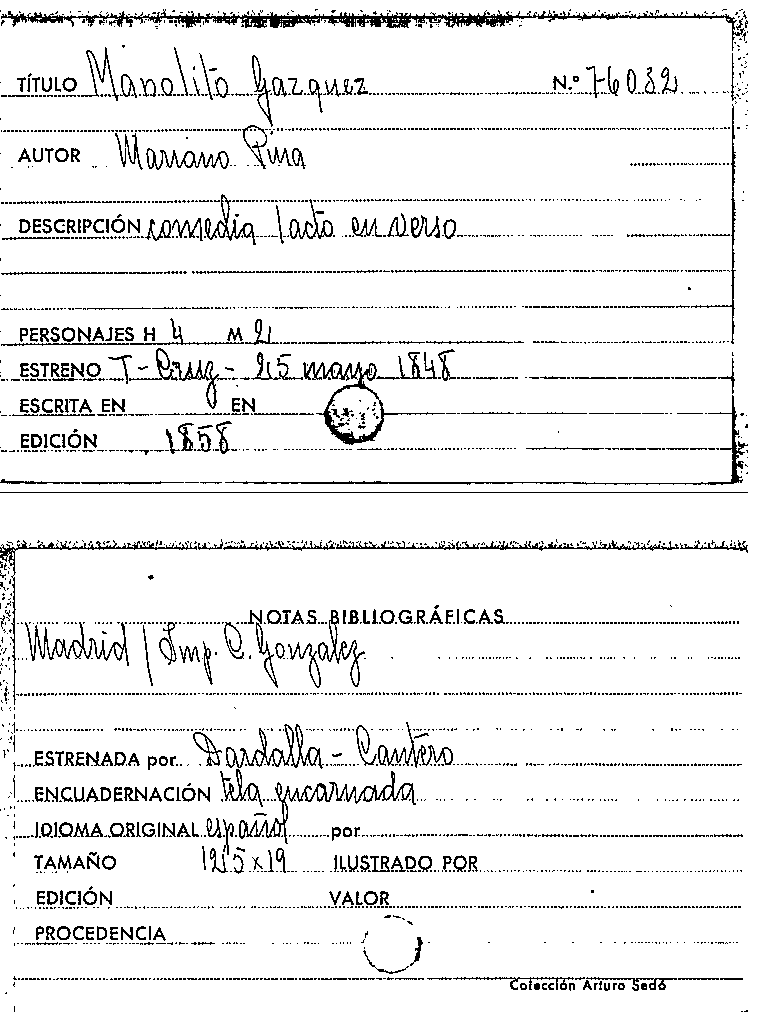 TÍTULO Manolito Gazquez N.º 76032
AUTOR Mariano Pina
DESCRIPCIÓN comedia 1 acto en verso
PERSONAJES H 4 M 2
ESTRENO T - Cruz - 25 mayo 1848
ESCRITA EN EN
EDICIÓN 1858
NOTAS BIBLIOGRÁFICAS
Madrid / Imp. C. Gonzalez
ESTRENADA por Dardalla - Cantero
ENCUADERNACIÓN tela encarnada
IDIOMA ORIGINAL español por
TAMAÑO 12'5 x 19 ILUSTRADO POR
EDICIÓN VALOR
PROCEDENCIA
Colección Arturo Sedó